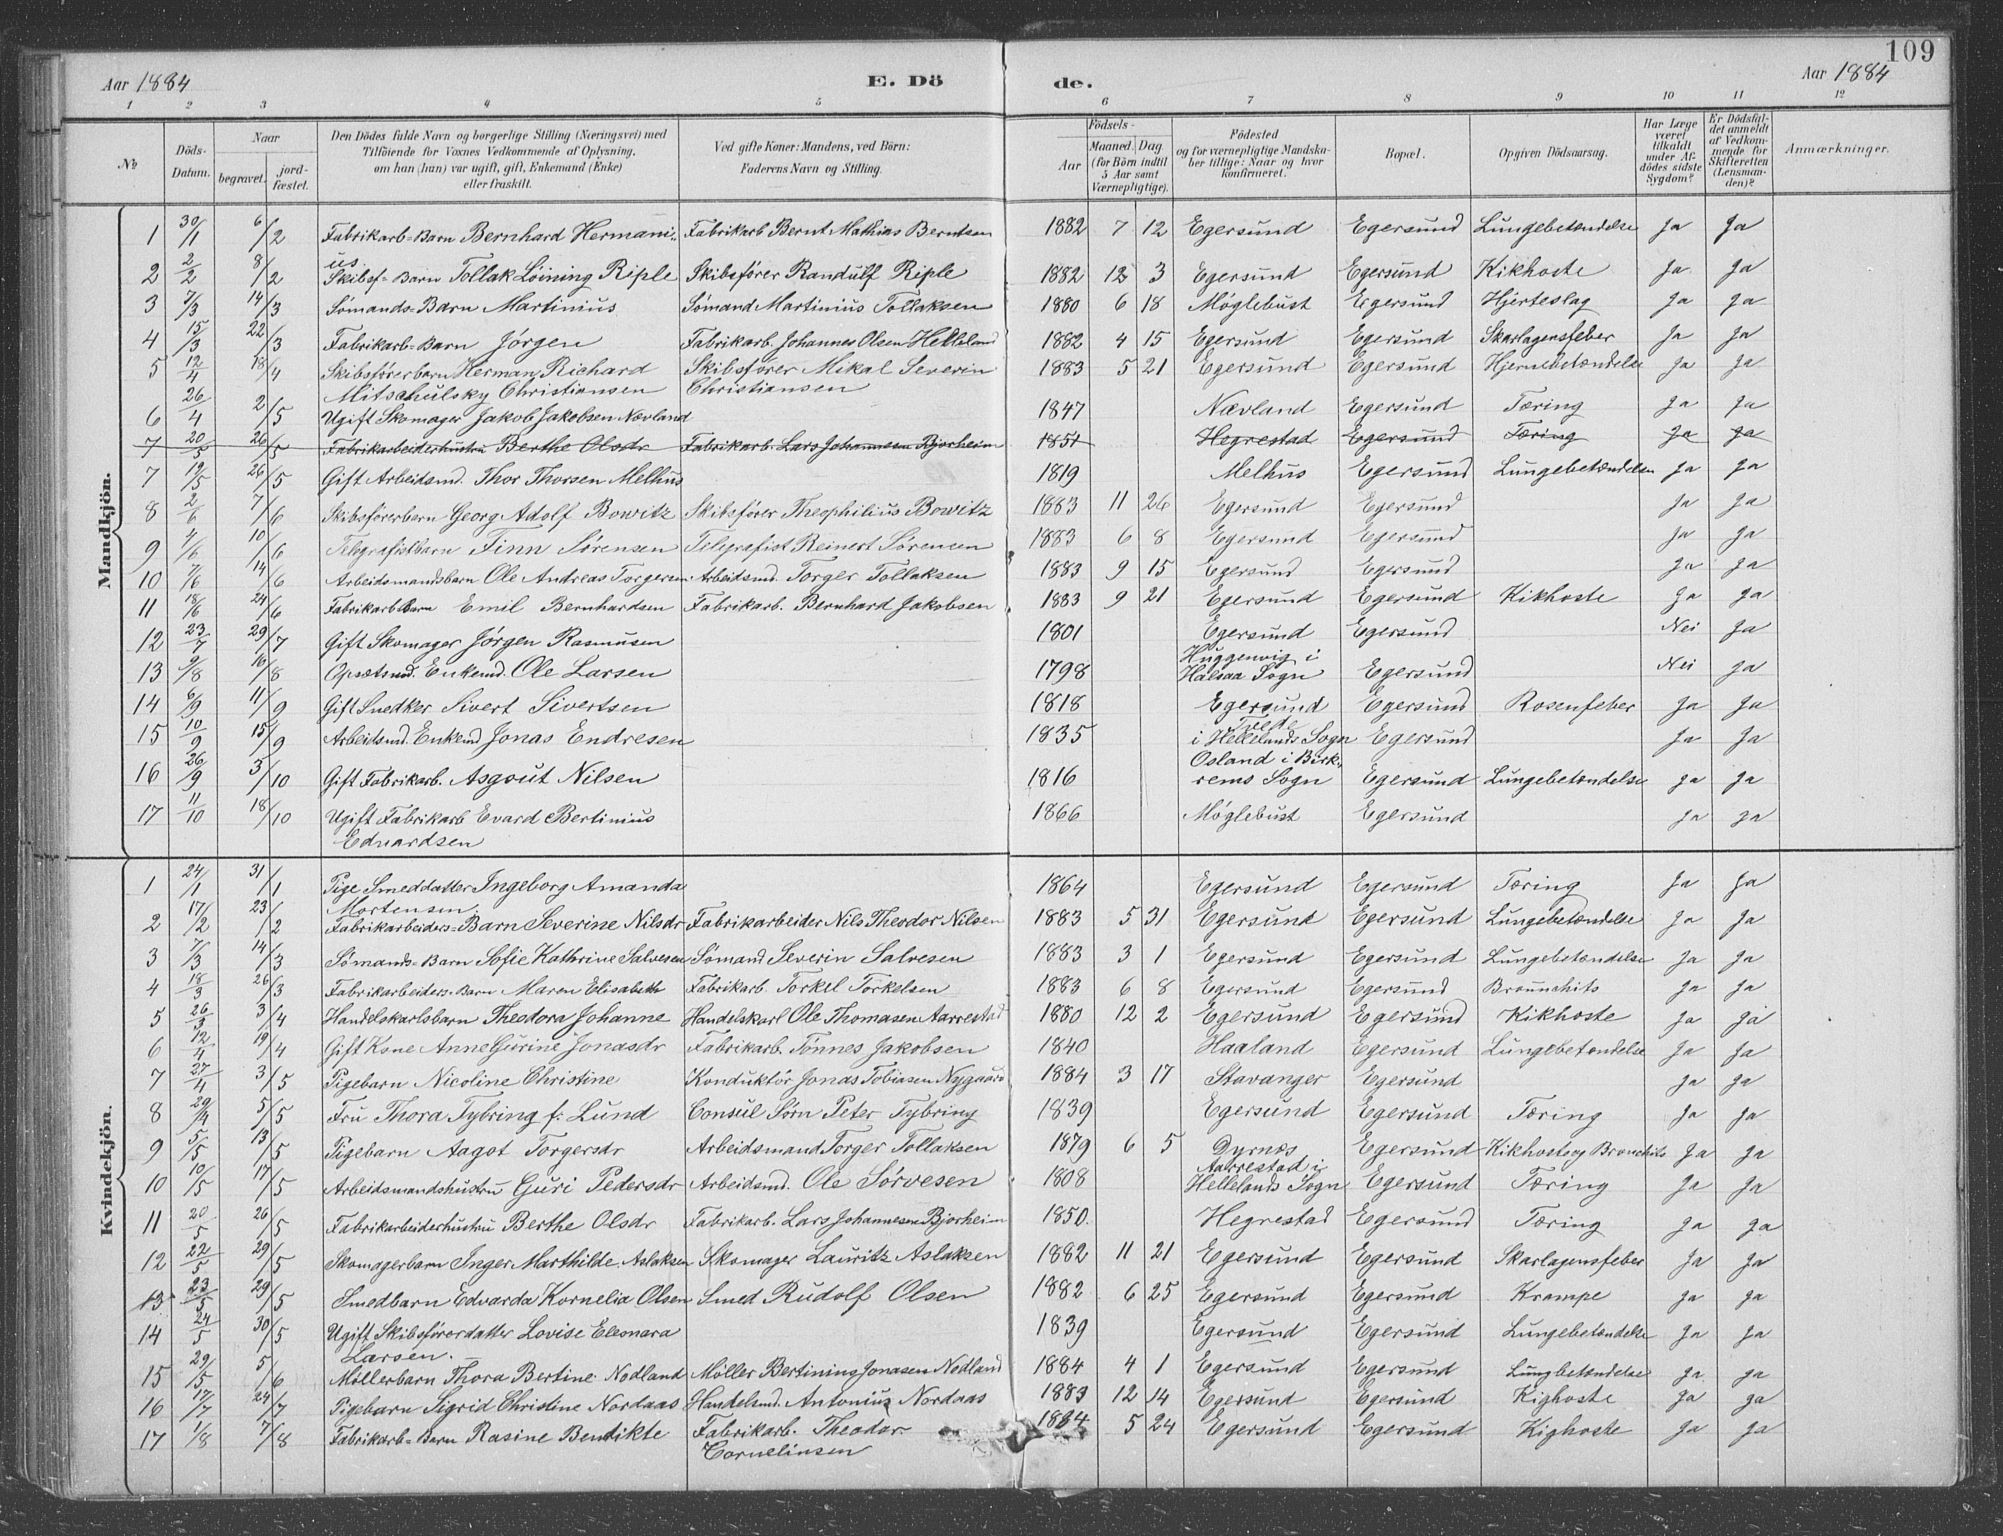 109
Aar 1884 E. Dö de. Aar 1884
1 2 3 4 5 6 7 8 9 10 11 12
№ Döds-Datum. Naar begravet. jord-fæstet. Den Dödes fulde Navn og borgerlige Stilling (Næringsvei) med Tilföiende for Voxnes Vedkommende af Oplysning, om han (hun) var ugift, gift, Enkemand (Enke) eller fraskilt. Ved gifte Koner: Mandens, ved Börn: Faderens Navn og Stilling. Födsels- Aar Maaned. Dag. (for Börn indtil 5 Aar samt Værnepligtige). Födested og for værnepligtige Mandska-ber tillige: Naar og hvor konfirmeret. Bopæl. Opgiven Dödsaarsag. Har Læge været tilkaldt under Af-dödes sidste Sygdom? Er Dödsfal-det anmeldt af Vedkom-mende for Skifteretten (Lensman-den)? Anmærkninger.
Mandkjön.
1 30/1 6/2 Fabrikarb-Barn Bernhard Hermani- Fabrikarb Bernt Mathias Berntsen 1882 7 12 Egersund Egersund Lungebetændelse Ja Ja
us.
2 2/2 8/2 Skibsf-Barn Tollak Löining Riple Skibsfører Randulf Riple 1882 12 3 Egersund Egersund Kikhoste Ja Ja
3 7/3 14/3 Sømands-Barn Martinius Sømand Martinius Tollaksen 1880 6 18 Møglebust Egersund Hjerteslag Ja Ja
4 15/3 22/3 Fabrikarb-Barn Jørgen Fabrikarb. Johannes Olsen Helleland 1882 4 15 Egersund Egersund Skarlagensfeber Ja Ja
5 12/4 18/4 Skibsførerbarn Herman Richard Skibsfører Mikal Severin 1883 5 21 Egersund Egersund Hjernebetændelse Ja Ja
Mitschulsky Christiansen Christiansen
6 26/4 2/5 Ugift Skomager Jakob Jakobsen Nævland 1847 Nævland Egersund Tæring Ja Ja
7 20/5 26/5 Fabrikarbeiderhustru Berthe Olsdr Fabrikarb. Lars Johannesen Bjorheim 1851 Hegrestad Egersund Tæring Ja Ja
7 19/5 26/5 Gift Arbeidsmd. Thor Thorsen Melhus 1819 Melhus Egersund Lungebetændelsen Ja Ja
8 2/6 7/6 Skibsførerbarn Georg Adolf Bowitz Skibsfører Theophilius Bowitz 1883 11 26 Egersund Egersund Ja Ja
9 4/6 10/6 Telegrafistbarn Finn Sørensen Telegrafist Reinert Sørensen 1883 6 8 Egersund Egersund Ja Ja
10 7/6 14/6 Arbeidsmandsbarn Ole Andreas Torgersen Arbeidsmd. Torger Tollaksen 1883 9 15 Egersund Egersund Ja Ja
11 18/6 24/6 Fabrikarb Barn Emil Bernhardsen Fabrikarb. Bernhard Jakobsen 1883 9 21 Egersund Egersund Kikhoste Ja Ja
12 23/7 29/7 Gift Skomager Jørgen Rasmusen 1801 Egersund Egersund Nei Ja
13 9/8 16/8 Opsætsmd. Enkemd. Ole Larsen 1798 Huggenvig i Halsaa Sogn Egersund Nei Ja
14 6/9 11/9 Gift Snedker Sivert Sivertsen 1818 Egersund Egersund Rosenfeber Ja Ja
15 10/9 15/9 Arbeidsmd. Enkemd Jonas Endresen 1835 i Hellelands Sogn Egersund Ja Ja
16 26/9 3/10 Gift Fabrikarb. Asgout Nilsen 1816 Osland i Birk-rems Sogn Egersund Lungebetændelse Ja Ja
17 11/10 18/10 Ugift Fabrikarb Evard Bertinius 1866 Møglebust Egersund Ja Ja
Edvardsen
Kvindekjön.
1 24/1 31/1 Pige Smeddatter Ingeborg Amanda 1864 Egersund Egersund Tæring Ja Ja
Mortensen.
2 17/2 23/2 Fabrikarbeiders-Barn Severine Nilsdr Fabrikarbeider Nils Theodor Nilsen 1883 5 31 Egersund Egersund Lungebetændelse Ja Ja
3 7/3 14/3 Sømands-Barn Sofie Kathrine Salvesen Sømand Severin Salvesen 1883 3 1 Egersund Egersund Lungebetændelse Ja Ja
4 18/3 26/3 Fabrikarbeiders-Barn Maren Elisabeth Fabrikarb. Torkel Torkelsen 1883 6 8 Egersund Egersund Brounchits Ja Ja
5 26/3 3/4 Handelskarlsbarn Theodora Johanne Handelskarl Ole Thomasen Aarrestad 1880 12 2 Egersund Egersund Kikhoste Ja Ja
6 12/4 19/4 Gift Kone Anne Gurine Jonasdr Fabrikarb. Tønnes Jakobsen 1840 Haaland Egersund Lungebetændelse Ja Ja
7 27/4 3/5 Pigebarn Nicoline Christine Konduktör Jonas Tobiasen Nygaard 1884 3 17 Stavanger Egersund Ja Ja
8 29/4 5/5 Fru Thora Tybring f: Lund Consul Sørn Peter Tybring 1839 Egersund Egersund Tæring Ja Ja
9 5/5 13/5 Pigebarn Aagot Torgersdr Arbeidsmand Torger Tollaksen 1879 6 5 Dyrnæs Egersund Kikhoste og Bronchits Ja Ja
10 10/5 17/5 Arbeidsmandshustru Guri Pedersdr Arbeidsmd. Ole Sørvesen 1808 Aarrestad i Hellelands Sogn Egersund Tæring Ja Ja
11 20/5 26/5 Fabrikarbeiderhustru Berthe Olsdr Fabrikarb. Lars Johannesen Bjorheim 1850. Hegrestad Egersund Tæring Ja Ja
12 22/5 29/5 Skomagerbarn Inger Marthilde Aslaksen Skomager Lauritz Aslaksen 1882 11 21 Egersund Egersund Skarlagensfeber Ja Ja
13 23/5 29/5 Smedbarn Edvarda Kornelia Olsen Smed Rudolf Olsen 1882 6 25 Egersund Egersund Krampe Ja Ja
14 24/5 30/5 Ugift Skibsførerdatter Lovise Eleonara 1839 Egersund Egersund Lungebetændelse Ja Ja
Larsen.
15 29/5 5/6 Møllerbarn Thora Bertine Nodland Møller Bertining Jonasen Nodland 1884 4 1 Egersund Egersund Lungbetændelse Ja Ja
16 17/7 24/7 Pigebarn Sigrid Christine Nordaas Handelsmd. Antonius Nordaas 1883 12 14 Egersund Egersund Kighoste Ja Ja
17 1/8 7/8 Fabrikarb-Barn Rasine Bendikte Fabrikarb. Theodor 1884 5 24 Egersund Egersund Kighoste Ja Ja
Cornelinsen